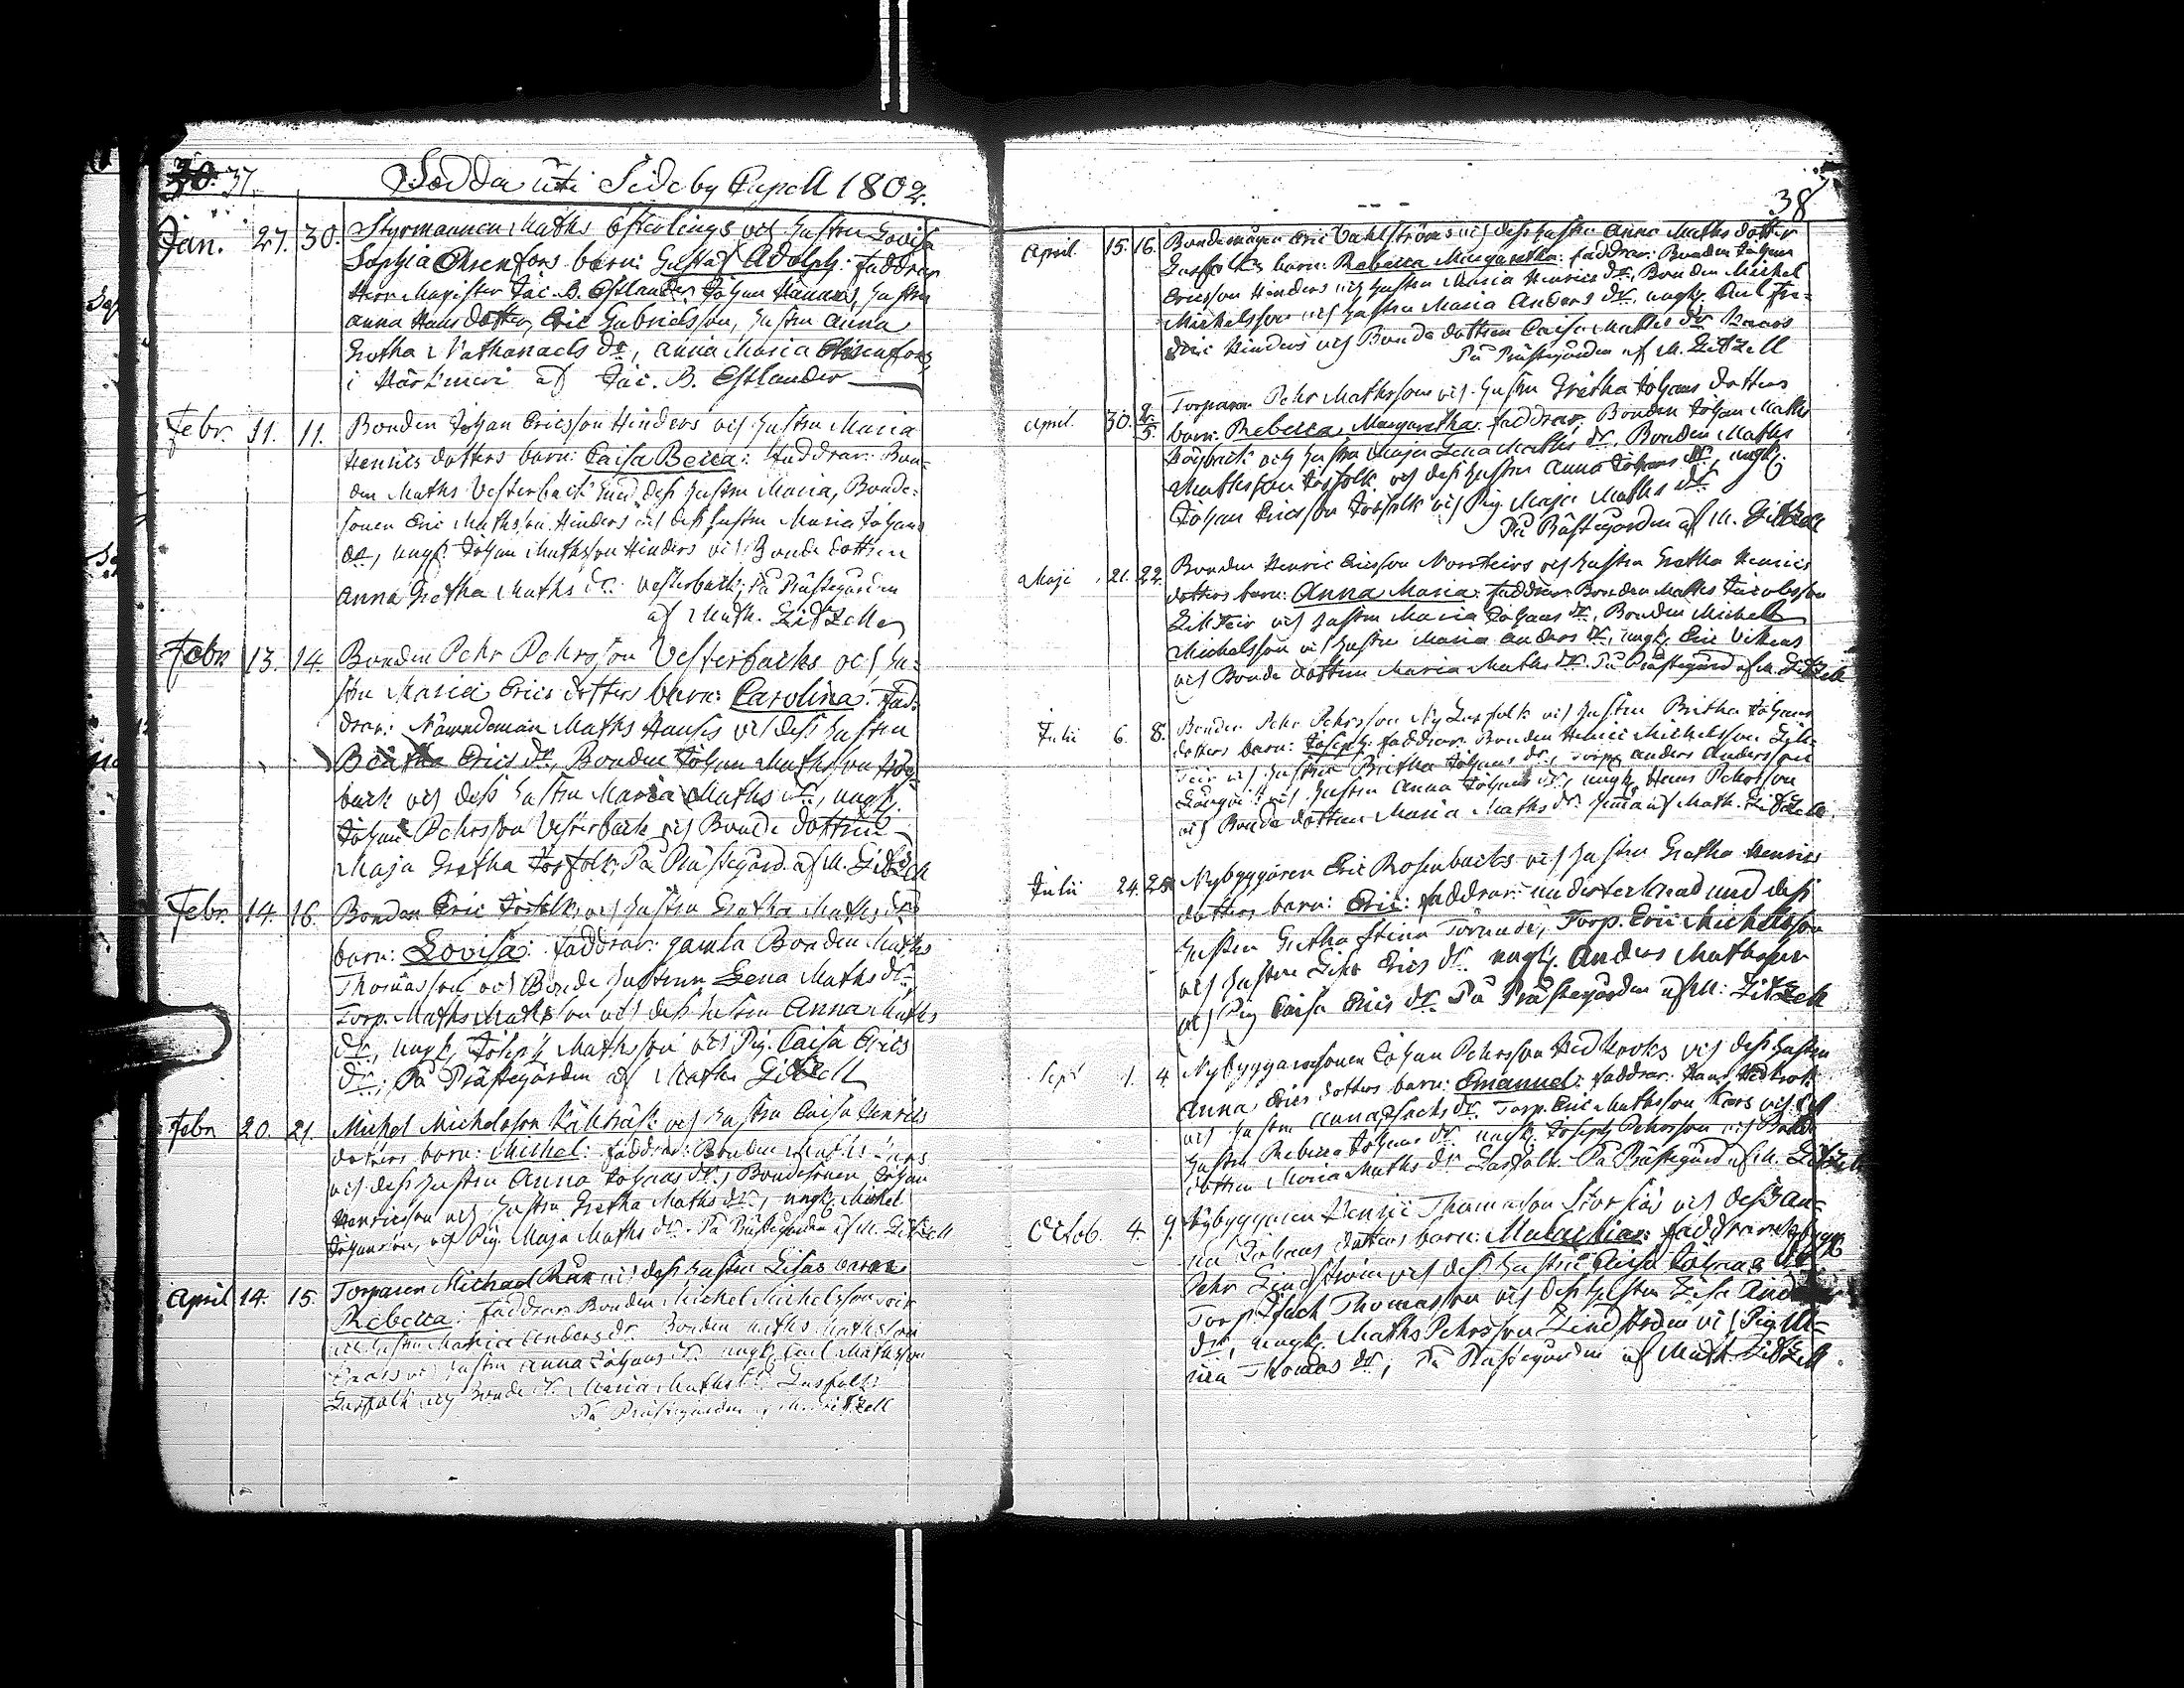 30. 37.
Födda uti Sideby Capell 1802.
Jan. 27. 30. Styrmannen Maths Österlings och hustru Lovisa
Sophia Ohrenfors barn: Gustaf Adolph: faddrar
Herr Magister Jac. B. Estlander, Johan Hannus, hustru
Anna Hansdotter, Eric Gabrielsson, hustru Anna
Gretha Nathanaels dr, Anna Maria Ohrenfors,
i Härkmeri af Jac. B. Estlander
Febr. 11. 11. Bonden Johan Ericsson Hinders och hustru Maria
Henrics dotters barn: Caisa Becca: Faddrar: Bon-
den Maths Vesterback med dess hustru Maria, Bonde-
sonen Eric Mathsson Hinders och dess hustru Maria Johans
dr, ungk. Johan Mathsson Hinders och Bonde dottren
Anna Gretha Maths dr Vesterback; På Prästegården
af Math. Litzell
Febr. 13. 14. Bonden Pehr Pehrsson Vesterbacks och hu-
stru Maria Erics dotters barn: Carolina: Fad-
drar: Nämndeman Maths Hanses och dess hustru
Beatha Erics dr, Bonden Johan Mathsson Hög-
back och dess hustru Maria Maths dr, ungk.
Johan Pehrsson Vesterback och Bonde dottren
Maja Gretha Josfolk; På Prästegård. af M. Litzell
Febr. 14. 16. Bonden Eric Josfolks och hustru Gretha Maths dr
barn: Lovisa: Faddrar: gamla Bonden Maths
Thomasson och Bonde hustrun Lena Maths dr,
Torp. Maths Mathsson och dess hustru Anna Maths
dr, ungk. Joseph Mathsson och Pig. Caisa Erics
dr; På Prästegården af Math. Litzell
Febr. 20. 21. Michel Michelsson och hustru Caisa Henrics
dotters barn: Michel: faddrar: Bonden Maths
och dess hustru Anna Johans dr, Bondesonen Johan
Henricsson och hustru Gretha Maths dr, ungk. Michel
Johansson, och Pig. Maja Maths dr. På Prästegården af M. Litzell
April 14. 15. Torparen Michael och dess hustru Lisas barn
Rebecca: faddrar Bonden Michel Michelsson
och hustru Maria Anders dr Bonden Maths Mathsson
och hustru Anna Johans dr ungk. Carl Mathsson
Lasfolk och Bonde dr Maria Maths dr Lasfolk
På Prästegården af M. Litzell
38
April 15. 16. Bondemågen Eric Dahlströms och dess hustru Anna Maths dotter
Lasfolks barn: Rebecca Margaretha: faddrar: Bonden Johan
Ericsson Hinders och hustru Maria Henrics dr, Bonden Michel
Michelsson och hustru Maria Anders dr, ungk. Carl Fre-
dric Hinders och Bonde dottren Caisa Maths dr
På Prästegården af M. Litzell
April. 30. 2/5. Torparen Pehr Mathssons och hustru Gretha Johans dotters
barn: Rebecca Margaretha: faddrar, Bonden Johan Maths
Högback och hustru Maja Lena Maths dr, Bonden Maths
Mathsson Josfolk och dess hustru Anna Johans dr, ungk.
Johan Ericsson Josfolk och Pig. Maja Maths dr
På Prästegården af M. Litzell
Maji 21. 22. Bonden Henric Ericsson Norrteirs och hustru Gretha Henrics
dotters barn: Anna Maria: faddrar: Bonden Maths Jacobsson
Lillteir och hustru Maria Johans dr, Bonden Michel
Michelsson och hustru Maria Anders dr, ungk. Eric
och Bonde dottren Maria Maths dr På Prästegård af M. Litzell
Julii 6. 8. Bonden Pehr Pehrsson Ny Lasfolk och hustru Britha Johans
dotters barn: Joseph: faddrar Bonden Henric Michelsson Lill-
Teir och hustru Britha Johans dr, Torp. Anders Andersson
Långvik och hustru Anna Johans dr, ungk. Hans Pehrsson
och Bonde dottren Maria Maths dr hemma af Math. Litzell
Julii 24. 25 Nybyggaren Eric Rosenbacks och hustru Gretha Henrics
dotters barn: Eric: faddrar: undertecknad med dess
hustru Gretha Stina Törnudd, Torp. Eric Michelsson
och hustru Erics dr ungk. Anders Mathsson
och Pig Caisa Erics dr På Prästegården af M: Litzell
Sept 1. 4. Nybyggaresonen Johan Pehrsson Hedkroks och dess hustru
Anna Erics dotters barn: Emanuel: faddrar: Hans Hedkrok
och hustru Anna Isacks dr Torp. Eric Mathsson Kars och
hustru Rebecca Johans dr ungk. Joseph Pehrsson och Bonde
dottren Maria Maths dr Lasfolk På Prästegård af M. Litzell
Octob. 4. 9. Nybyggaren Henric Thomasson Storsjös och dess
Johans dotters barn: Malachias: faddrar: Nybygg.
Pehr Lindström och dess hustru Caisa Johans dr
Torp. Isach Thomasson och dess hustru Lisa
dr, ungk. Maths Pehrsson Lindström och Pig. Ma-
ria Thomas dr, På Prästegården af Math. Litzell.